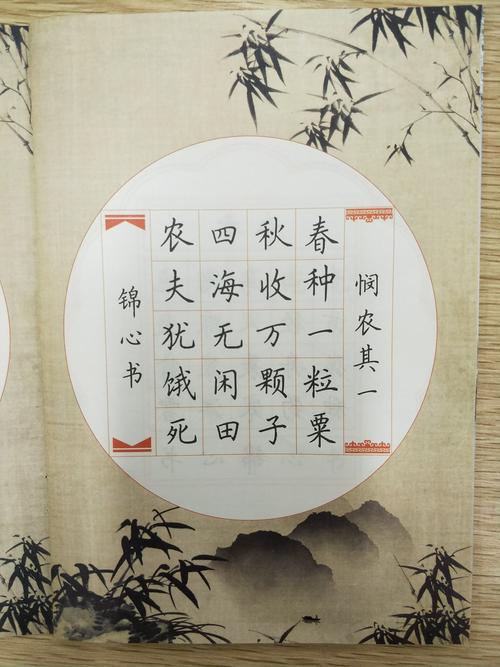 悯农其一
春种一粒粟
秋收万颗子
四海无闲田
农夫犹饿死
锦心书